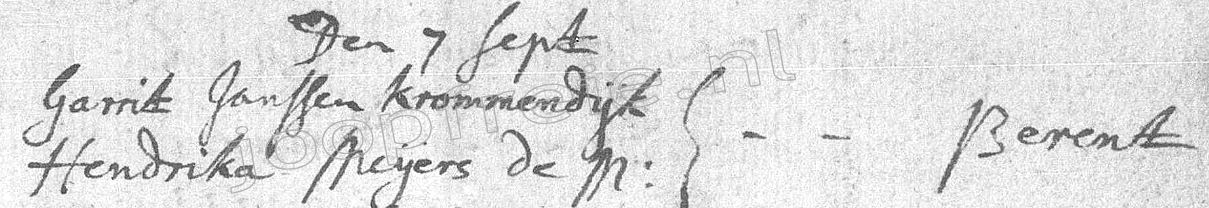 Den 7 Sept
Garrit Janssen Krommendijk
Hendrika Meijers de M: } - - Berent
joopmoes.nl